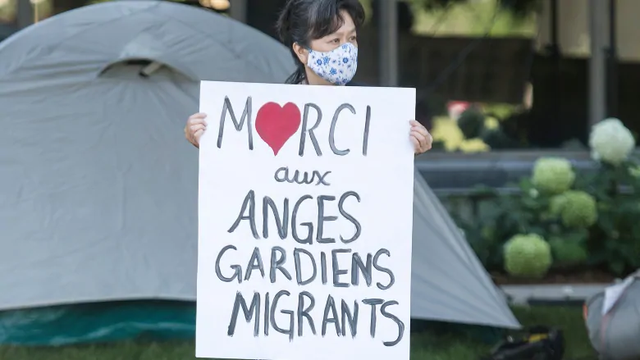 M❤RCI
aux
ANGES
GARDIENS
MIGRANTS